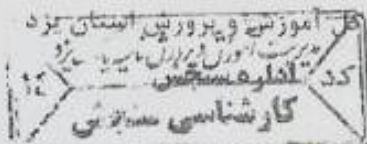 کل آموزش و پرورش استان یزد
مدیریت آموزش و پرورش ناحیه یزد
کد اداره سنجش ۱۴
کارشناسی سنجش